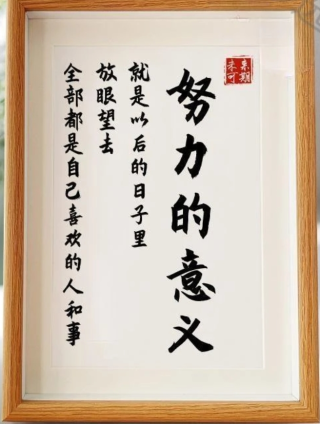 努力的意义
就是以后的日子里
放眼望去
全部都是自己喜欢的人和事
未来可期